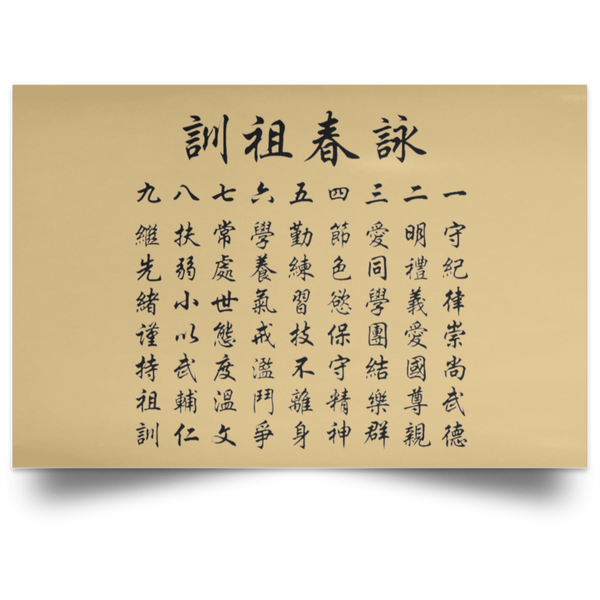 詠春祖訓
一守紀律崇尚武德
二明禮義愛國尊親
三愛同學團結樂群
四節色慾保守精神
五勤練習技不離身
六學養氣戒濫鬥爭
七常處世態度溫文
八扶弱小以武輔仁
九繼先緒謹持祖訓